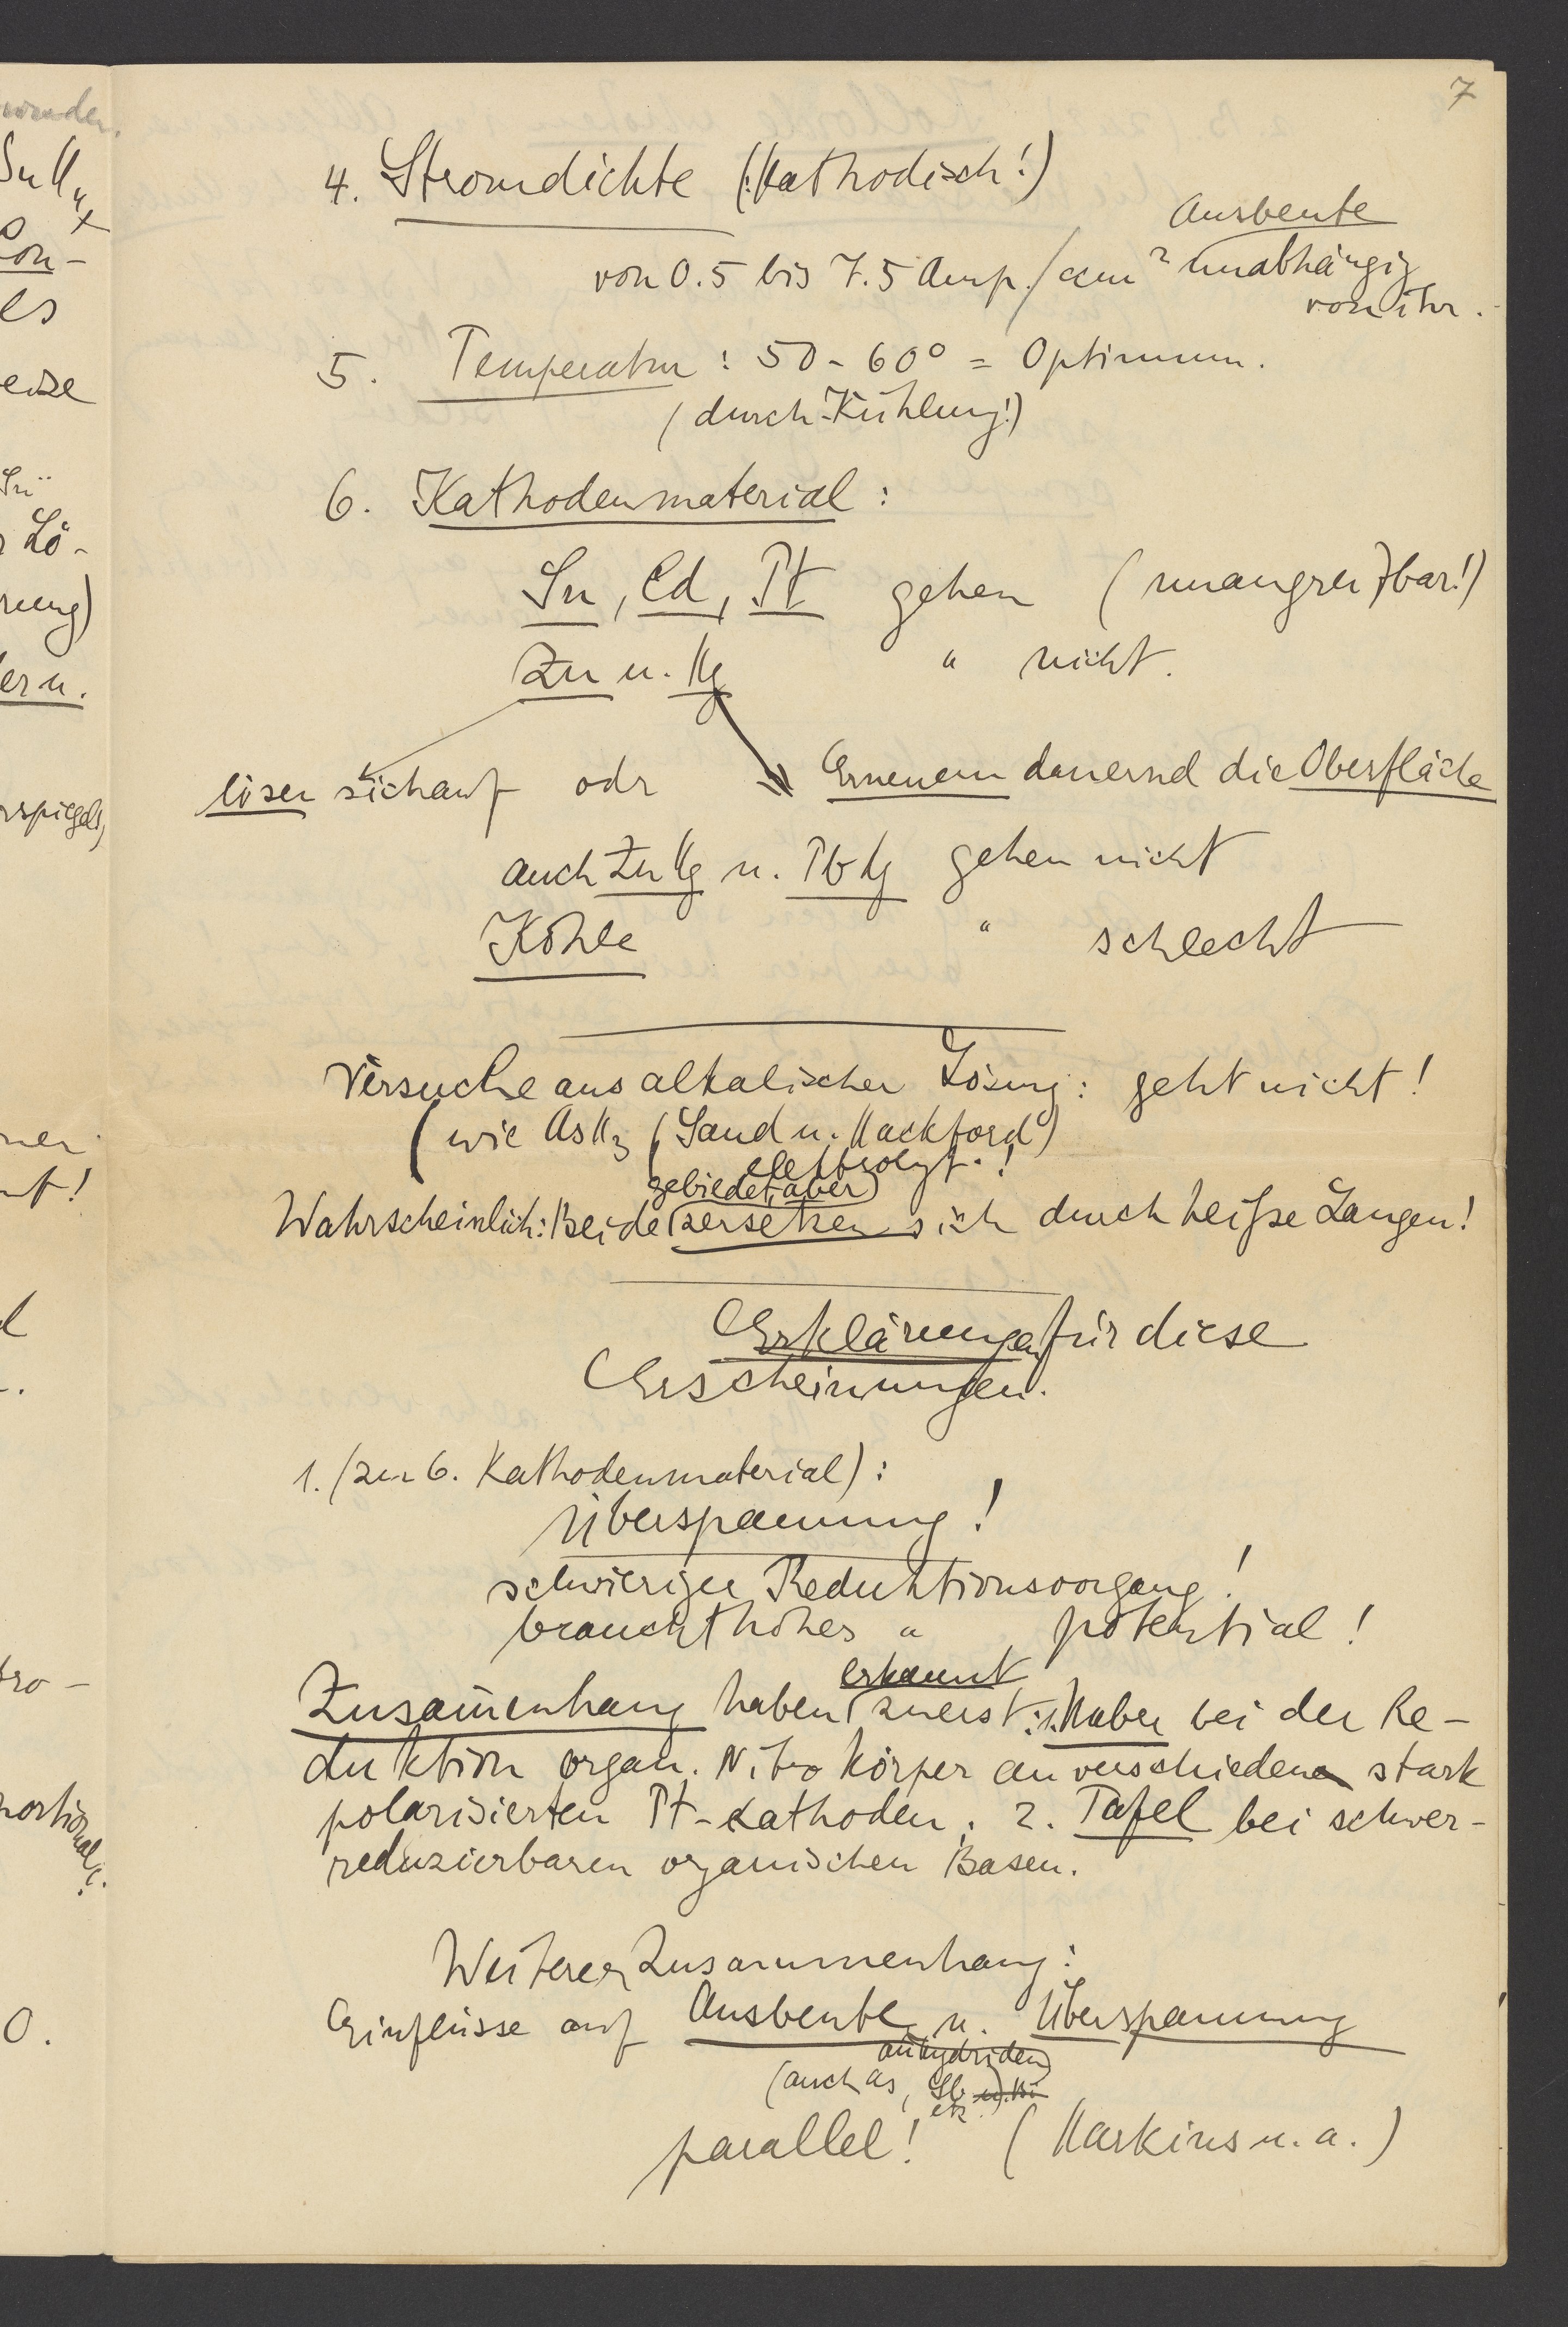 7
4. Stromdichte (:Kathodisch!)
Ausbeute
von 0.5 bis 7.5 Amp./ccm² unabhängig
von ihr.
5. Temperatur: 50-60° = Optimum.
(durch Kühlung!)
6. Kathodenmaterial:
Sn, Cd, Pt gehen (unangreifbar!)
Zn u. Hg " nicht.
lösen sich auf odr Erneuern dauernd die Oberfläche
auch ZnHg u. PbHg gehen nicht
Kohle " schlecht
Versuche aus alkalischer Lösung: geht nicht!
(wie AsH₃ (Sand u. Hackford)
elektrolyt.!
gebildet, aber
Wahrscheinlich: Beide zersetzen sich durch heiße Laugen!
Erklärungen für diese
Erscheinungen.
1. (zu 6. Kathodenmaterial):
Überspannung!
schwieriger Reduktionsvorgang!
braucht hohes " potential!
erkannt
Zusam̄enhang haben zuerst: 1. Haber bei der Re-
duktion organ. Nitrokörper an verschieden stark
polarisierten Pt-Kathoden. 2. Tafel bei schwer-
reduzierbaren organischen Basen.
Weiterer Zusammenhang:
Einflüsse auf Ausbeute u. Überspannung
anhydriden
(auch As, Sb u. Bi
etc.)
parallel! (Harkins u. a.)